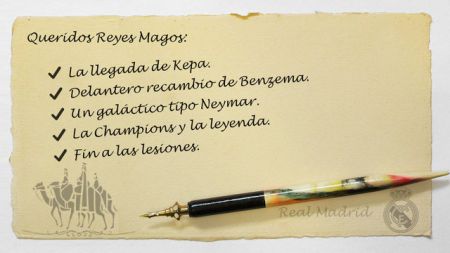 Queridos Reyes Magos:
La llegada de Kepa.
Delantero recambio de Benzema.
Un galáctico tipo Neymar.
La Champions y la leyenda.
Fin a las lesiones.
Real Madrid